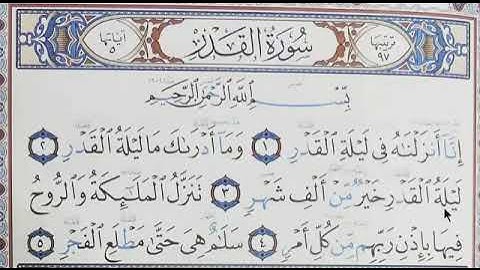 ترتيبها ٩٧ سُورَةُ الْقَدْرِ آياتها ٥
بِسْمِ ٱللَّهِ ٱلرَّحْمَٰنِ ٱلرَّحِيمِ
إِنَّا أَنزَلْنَٰهُ فِي لَيْلَةِ ٱلْقَدْرِ ١ وَمَا أَدْرَىٰكَ مَا لَيْلَةُ ٱلْقَدْرِ ٢
لَيْلَةُ ٱلْقَدْرِ خَيْرٌ مِّنْ أَلْفِ شَهْرٍ ٣ تَنَزَّلُ ٱلْمَلَٰٓئِكَةُ وَٱلرُّوحُ
فِيهَا بِإِذْنِ رَبِّهِم مِّن كُلِّ أَمْرٍ ٤ سَلَٰمٌ هِيَ حَتَّىٰ مَطْلَعِ ٱلْفَجْرِ ٥